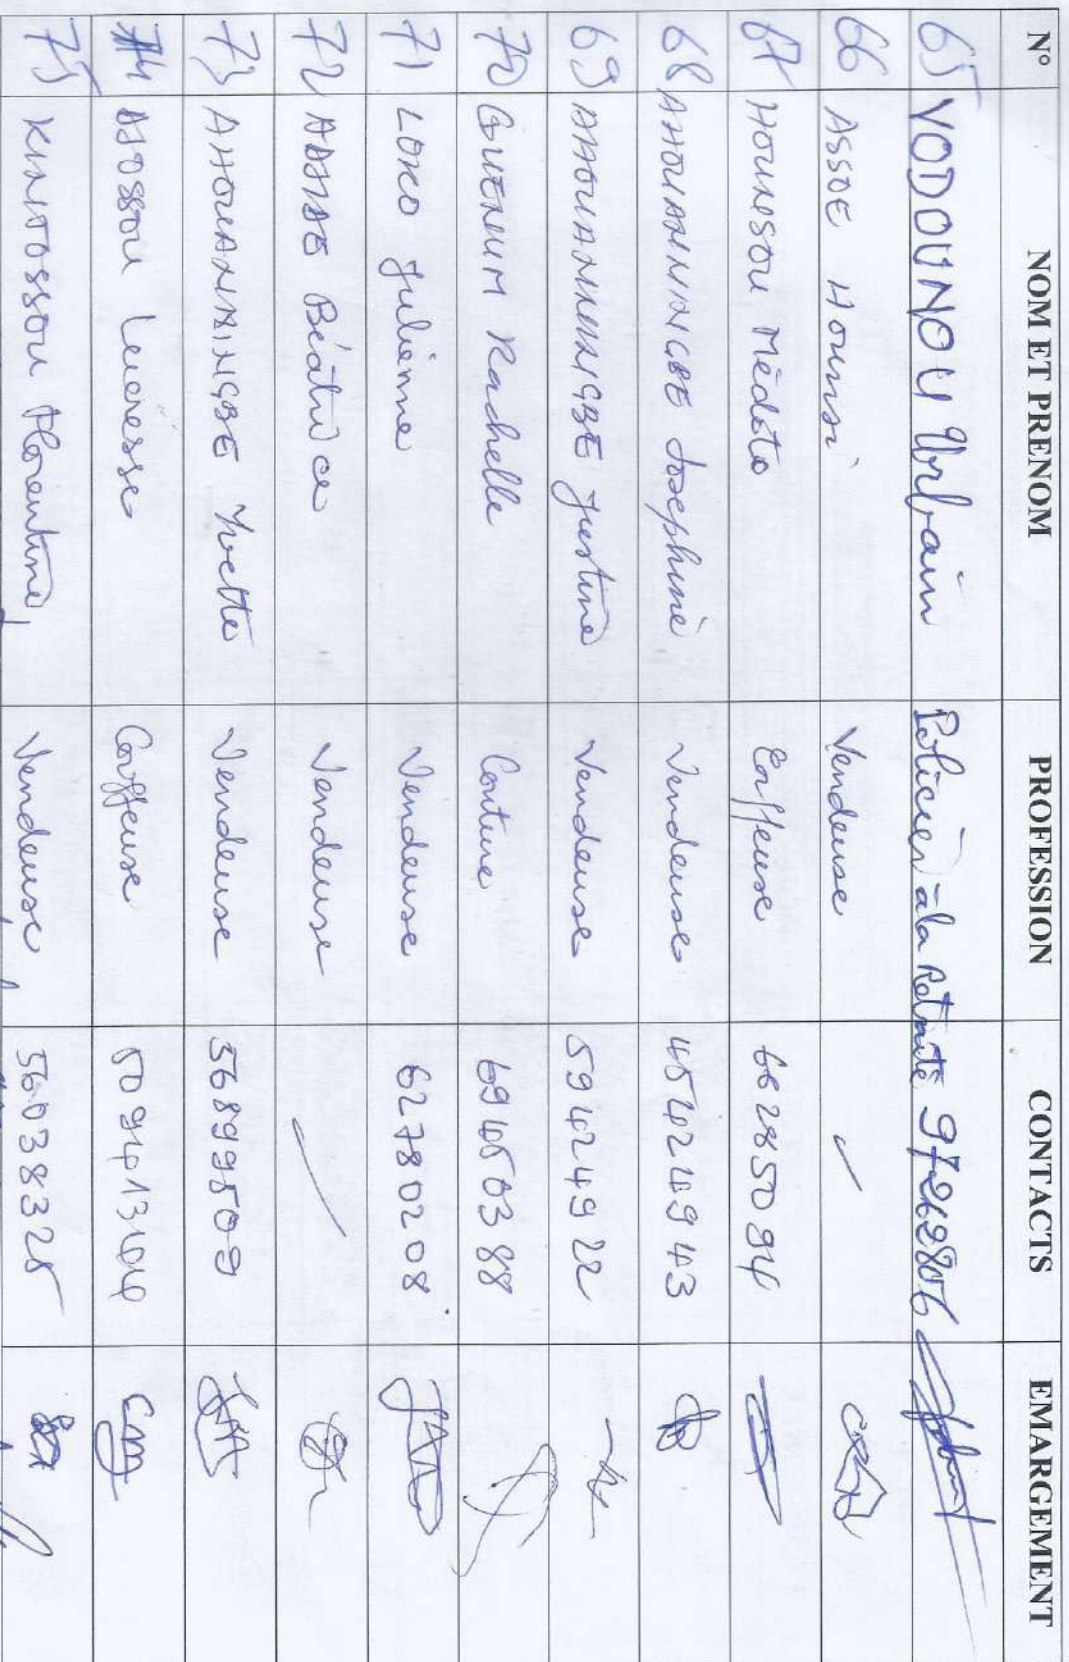 N° NOM ET PRENOM PROFESSION CONTACTS EMARGEMENT
65 VODOUNOU Urbain Policier à la Retraite 97269806
66 ASSOE Hounsi Vendeuse
67 HOUNSOU Médéto Coiffeuse 66285094
68 AHOUANNINGBE Josephine Vendeuse
69 AHOUANNINGBE Justine Vendeuse 59424922
70 GUENUM Rachelle Couture 69450388
71 LOKO Julienne Vendeuse 62780208
72 Béatrice Vendeuse
73 AHOUANNINGBE Yvette Vendeuse 56899509
74 AJOSSOU Lucresse Coiffeuse 50941304
75 KINTOSSOU Florentine Vendeuse 56038325